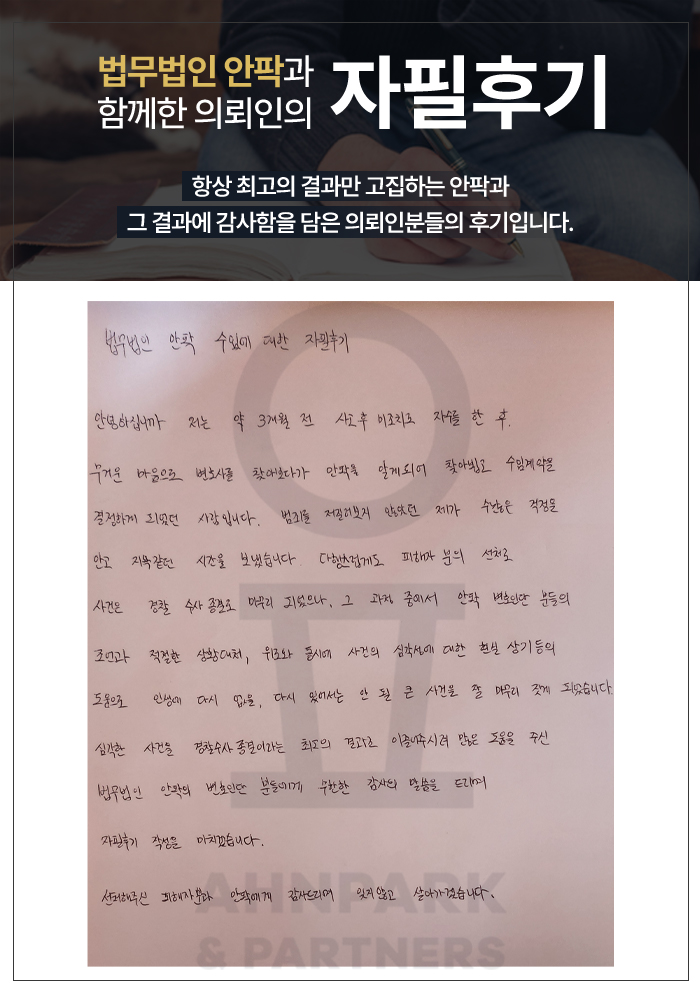 법무법인 안팍과
함께한 의뢰인의
자필후기
항상 최고의 결과만 고집하는 안팍과
그 결과에 감사함을 담은 의뢰인분들의 후기입니다.
법무법인 안팍 수임에 대한 자필후기
안녕하십니까 저는 약 3개월 전 사고후 미조치로 자수를 한 후.
무거운 마음으로 변호사를 찾아보다가 안팍을 알게되어 찾아뵙고 수임계약을
결정하게 되었던 사람입니다. 범죄를 저질러보지 않았던 제가 수많은 걱정을
안고 지옥같던 시간을 보냈습니다. 다행스럽게도 피해자 분의 선처로
사건은 경찰 수사 종결로 마무리 되었으나, 그 과정 중에서 안팍 변호인단 분들의
조언과 적절한 상황대처, 위로와 동시에 사건의 심각성에 대한 현실 상기 등의
도움으로 인생에 다시 없을, 다시 있어서는 안 될 큰 사건을 잘 마무리 짓게 되었습니다.
심각한 사건을 경찰수사 종결이라는 최고의 결과로 이끌어주시려 많은 도움을 주신
법무법인 안팍의 변호인단 분들에게 무한한 감사의 말씀을 드리며
자필후기 작성을 마치겠습니다.
선처해주신 피해자분과 안팍에게 감사드리며 잊지않고 살아가겠습니다.
AHNPARK
& PARTNERS